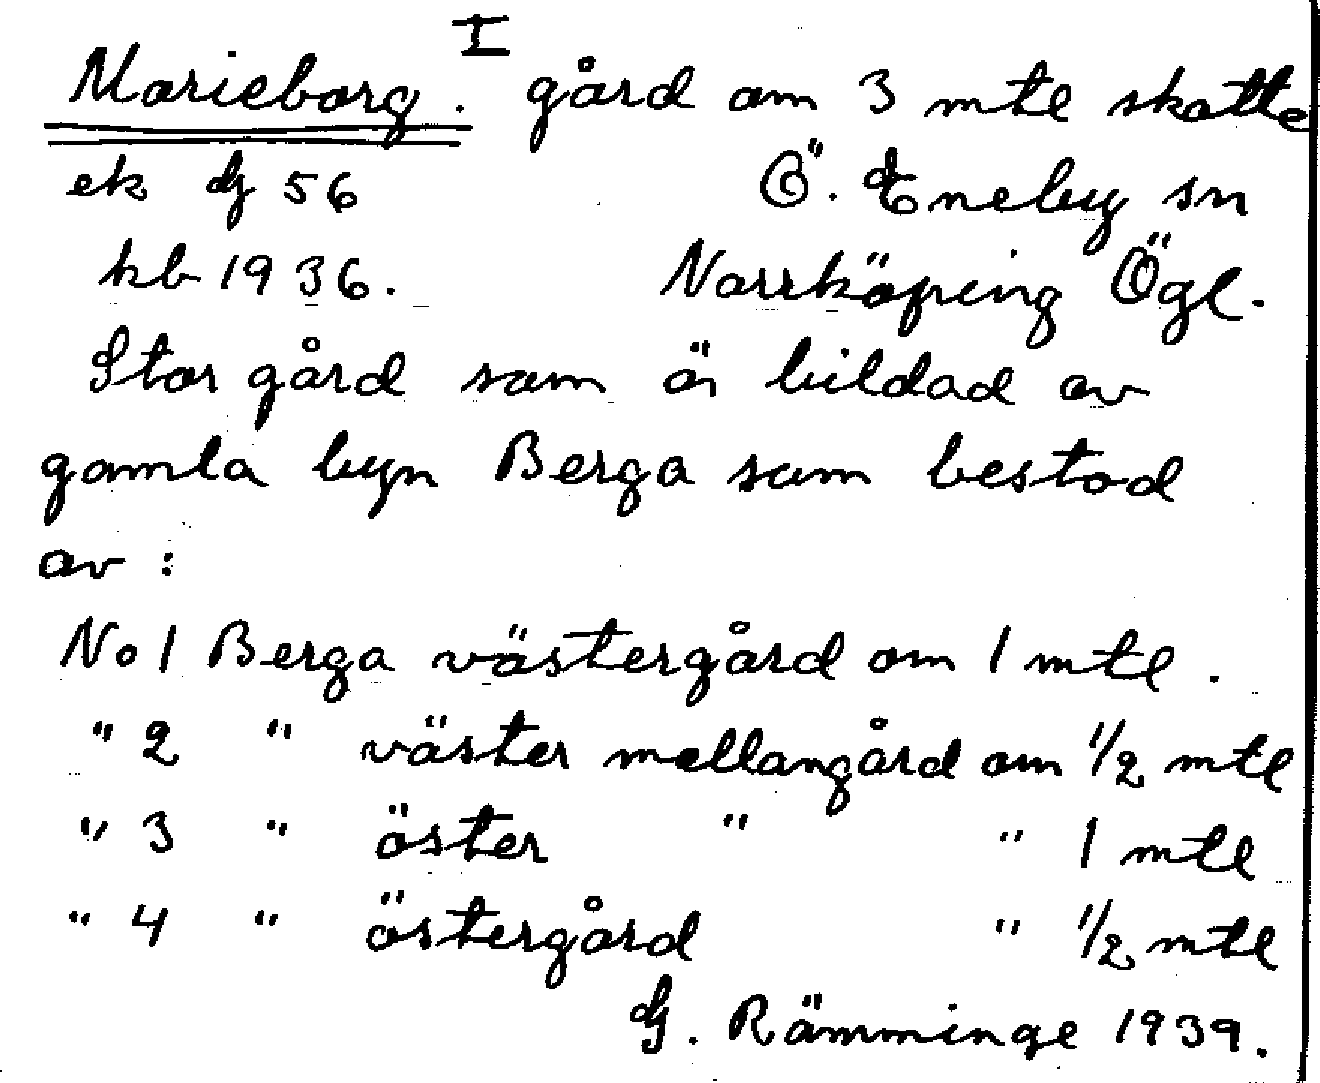 I
Marieborg. gård om 3 mtl skatte
ek G 56 Ö. Eneby sn
kb 1936. Norrköping Ögl.
Stor gård som är bildad av
gamla byn Berga som bestod
av :
No 1 Berga västergård om 1 mtl.
" 2 " väster mellangård om 1/2 mtl
" 3 " öster " " 1 mtl
" 4 " östergård " 1/2 mtl
G. Rämminge 1939.